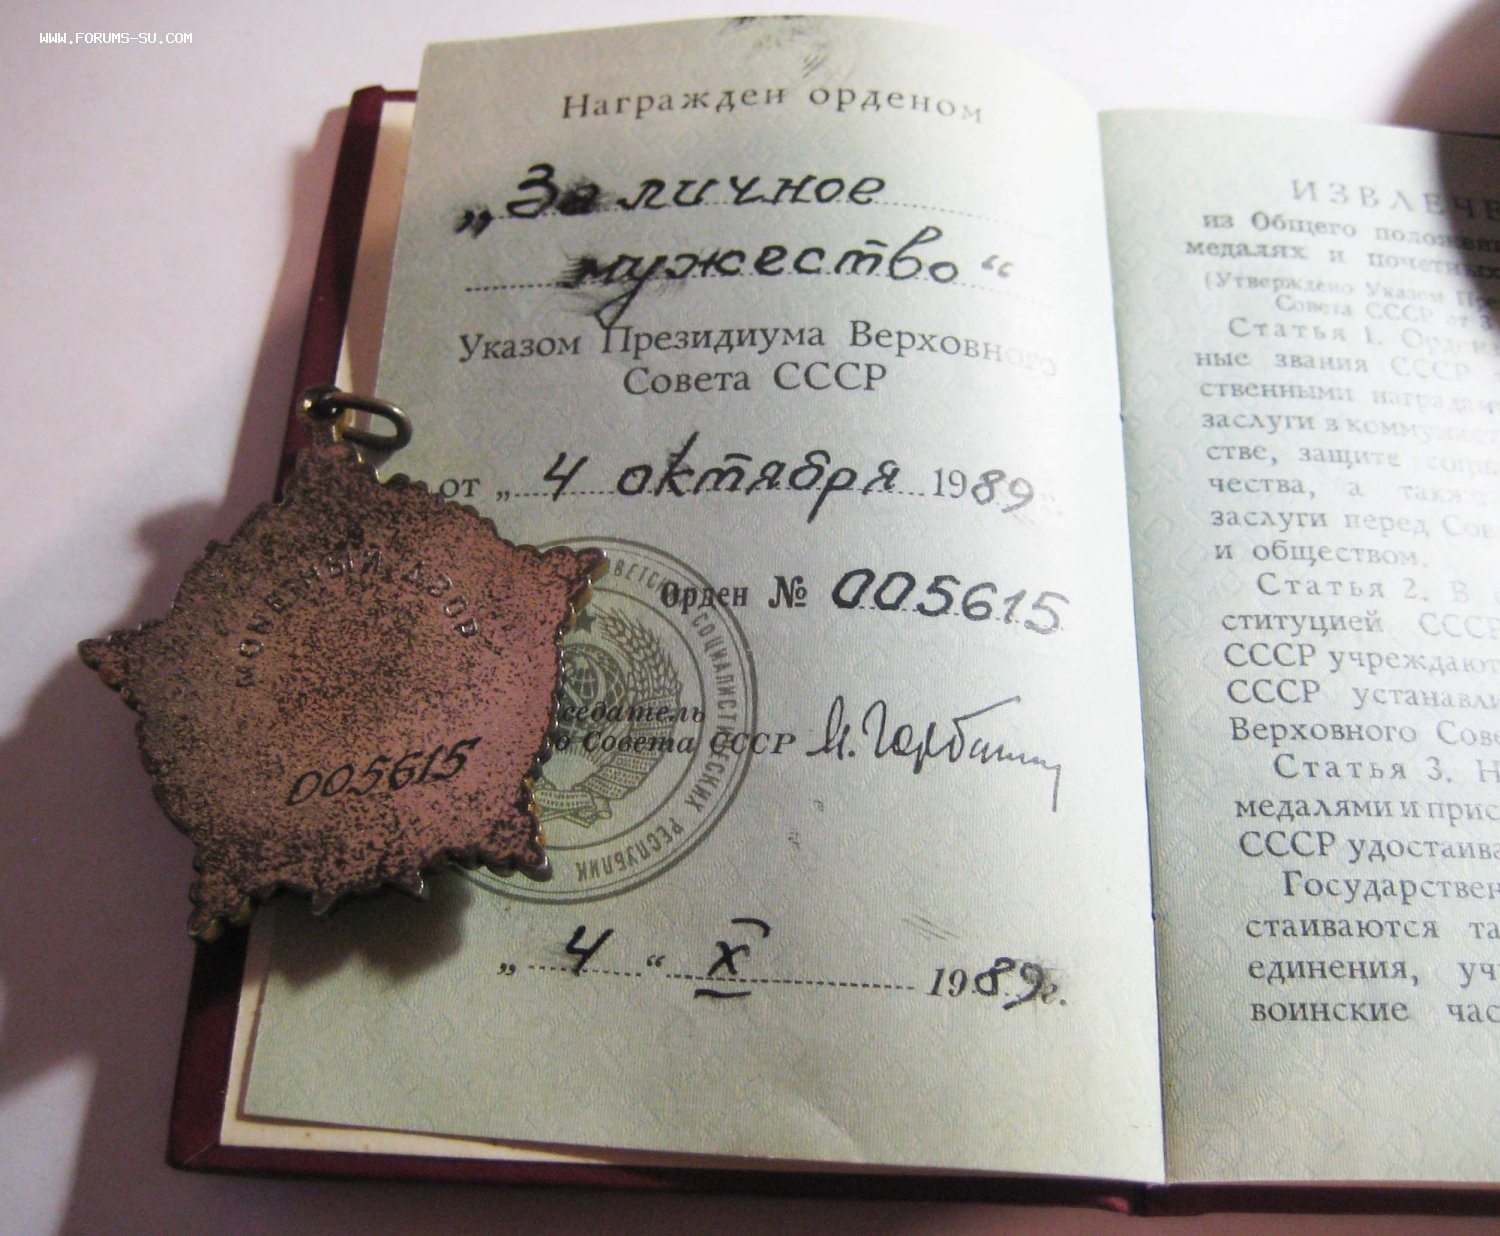 WWW.FORUMS-SU.COM
Награжден орденом
„За личное
мужество“
Указом Президиума Верховного
Совета СССР
от „ 4 октября 1989
Орден № 005615
седатель
о Совета СССР М. Горбачев
„ 4 “ X 1989г.
СОЦИАЛИСТИЧЕСКИХ РЕСПУБЛИК
МОНЕТНЫЙ ДВОР
005615
ИЗВЛЕЧЕ
из Общего положен
медалях и почетных
(Утверждено Указом Пре
Совета СССР от 3
Статья 1. Орден
ные звания СССР
ственными наградам
заслуги в коммунист
стве, защите соци
чества, а также
заслуги перед Сов
и обществом.
Статья 2. В
ституцией СССР
СССР учреждают
СССР устанавли
Верховного Сове
Статья 3. Н
медалями и прис
СССР удостаива
Государствен
стаиваются та
единения, уч
воинские час